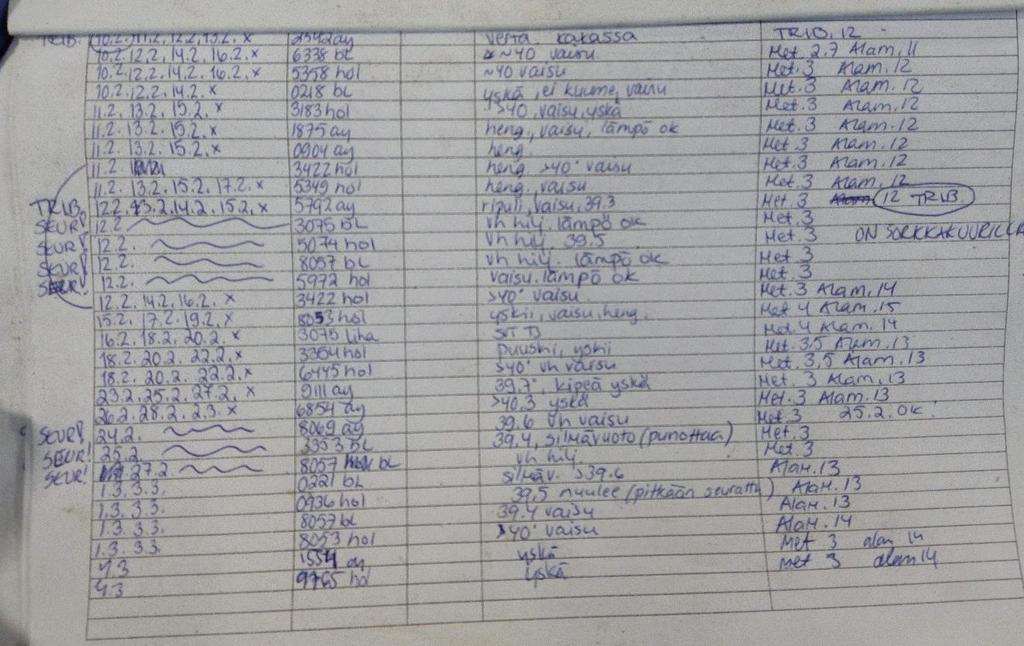 TRIB. 10.2. 11.2. 12.2. 13.2. x 2542 ay verta kakassa TRIB. 12
10.2. 12.2. 14.2. 16.2. x 6338 bl ~40 vaisu Met. 2,7 Alam. 11
10.2. 12.2. 14.2. 16.2. x 5358 hol ~40 vaisu Met. 3 Alam. 12
10.2. 12.2. 14.2. x 0218 bl yskä, ei kuume, vaisu Met. 3 Alam. 12
11.2. 13.2. 15.2. x 3183 hol >40, vaisu, yskä Met. 3 Alam. 12
11.2. 13.2. 15.2. x 1875 ay heng., vaisu, lämpö ok Met. 3 Alam. 12
11.2. 13.2. 15.2. x 0904 ay heng. Met. 3 Alam. 12
11.2. 3422 hol heng. >40° vaisu Met. 3 Alam. 12
11.2. 13.2. 15.2. 17.2. x 5349 hol heng., vaisu Met. 3 Alam. 12
TRIB. 12.2. 13.2. 14.2. 15.2. x 5792 ay ripuli, vaisu, 39.3 Met. 3 12 TRIB.
SEUR! 12.2. 3075 bl vh hilj. lämpö ok Met. 3
SEUR! 12.2. 5074 hol vh hilj. 39.5 Met. 3 ON SORKKAKUURILLA
SEUR! 12.2. 8057 bl vh hilj. lämpö ok Met. 3
SEUR! 12.2. 5972 hol vaisu, lämpö ok Met. 3
12.2. 14.2. 16.2. x 3422 hol >40° vaisu Met. 3 Alam. 14
15.2. 17.2. 19.2. x 8053 hol yskii, vaisu, heng. Met 4 Alam. 15
16.2. 18.2. 20.2. x 3075 liha Met. 4 Alam. 14
18.2. 20.2. 22.2. x 3364 hol puuskii, yskii Met. 3,5 Alam. 13
18.2. 20.2. 22.2. x 6445 hol >40° vh vaisu Met. 3,5 Alam. 13
23.2. 25.2. 27.2. x 9111 ay 39.7°, kipeä yskä Met. 3 Alam. 13
26.2. 28.2. 2.3. x 6854 ay >40.3 yskä Met. 3 Alam. 13
SEUR! 24.2. 8069 ay 39.6 vh vaisu Met. 3 25.2. OK.
SEUR! 25.2. 3353 bl 39.4, silmävuoto (punottaa) Met. 3
SEUR! 27.2. 8057 bl vh hilj Met. 3
1.3. 3.3. 0221 bl silmäv. >39.6 Alam. 13
1.3. 3.3. 0936 hol 39.5 nuulee (pitkään seurattu) Alam. 13
1.3. 3.3. 8057 bl 39.4 vaisu Alam. 13
1.3. 3.3. 8053 hol >40° vaisu Alam. 14
4.3 1554 ay yskä Met 3 alam 14
4.3 9765 hol yskä met 3 alam 14